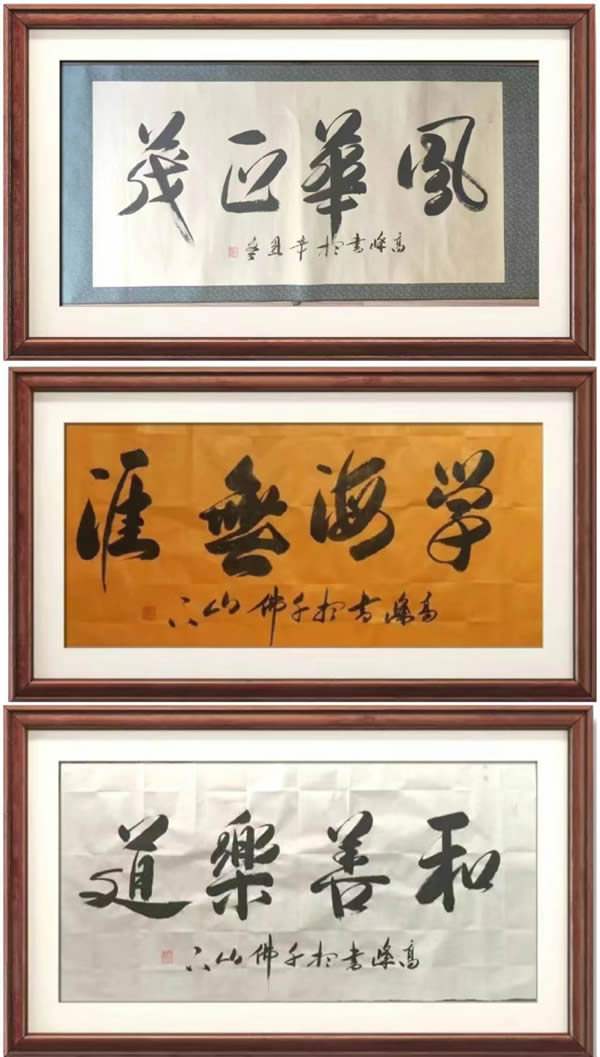 風華正茂
高峰書於辛丑冬
学海無涯
高峰書於千佛山下
和善樂道
高峰書於千佛山下